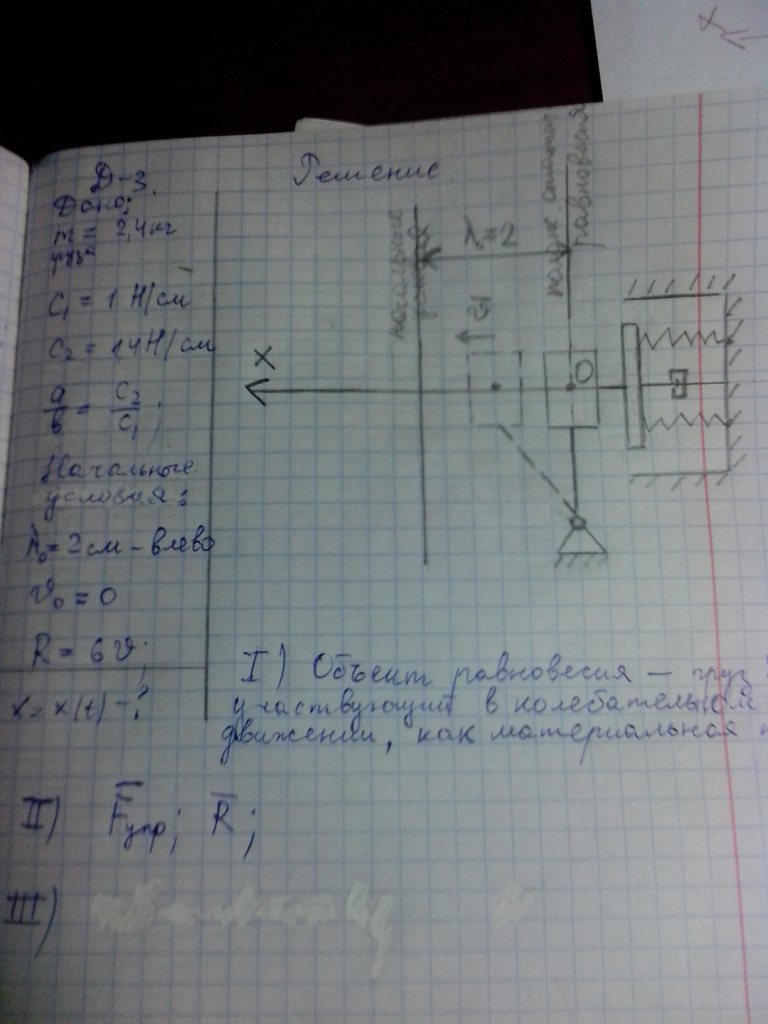 Д-3.
Решение
Дано:
m = 2,4 кг
груз
C₁ = 1 Н/см
C₂ = 1,4 Н/см
a/b = C₂/C₁;
Начальные
условия:
λ₀ = 2 см – влево
v₀ = 0
R = 6v;
x = x(t) – ?
начальные
λ₀=2
полож. статич
равновесия
X
O
X
I) Объект равновесия – груз
участвующий в колебательном
движении, как материальная
II) F̅упр; R̅;
III)